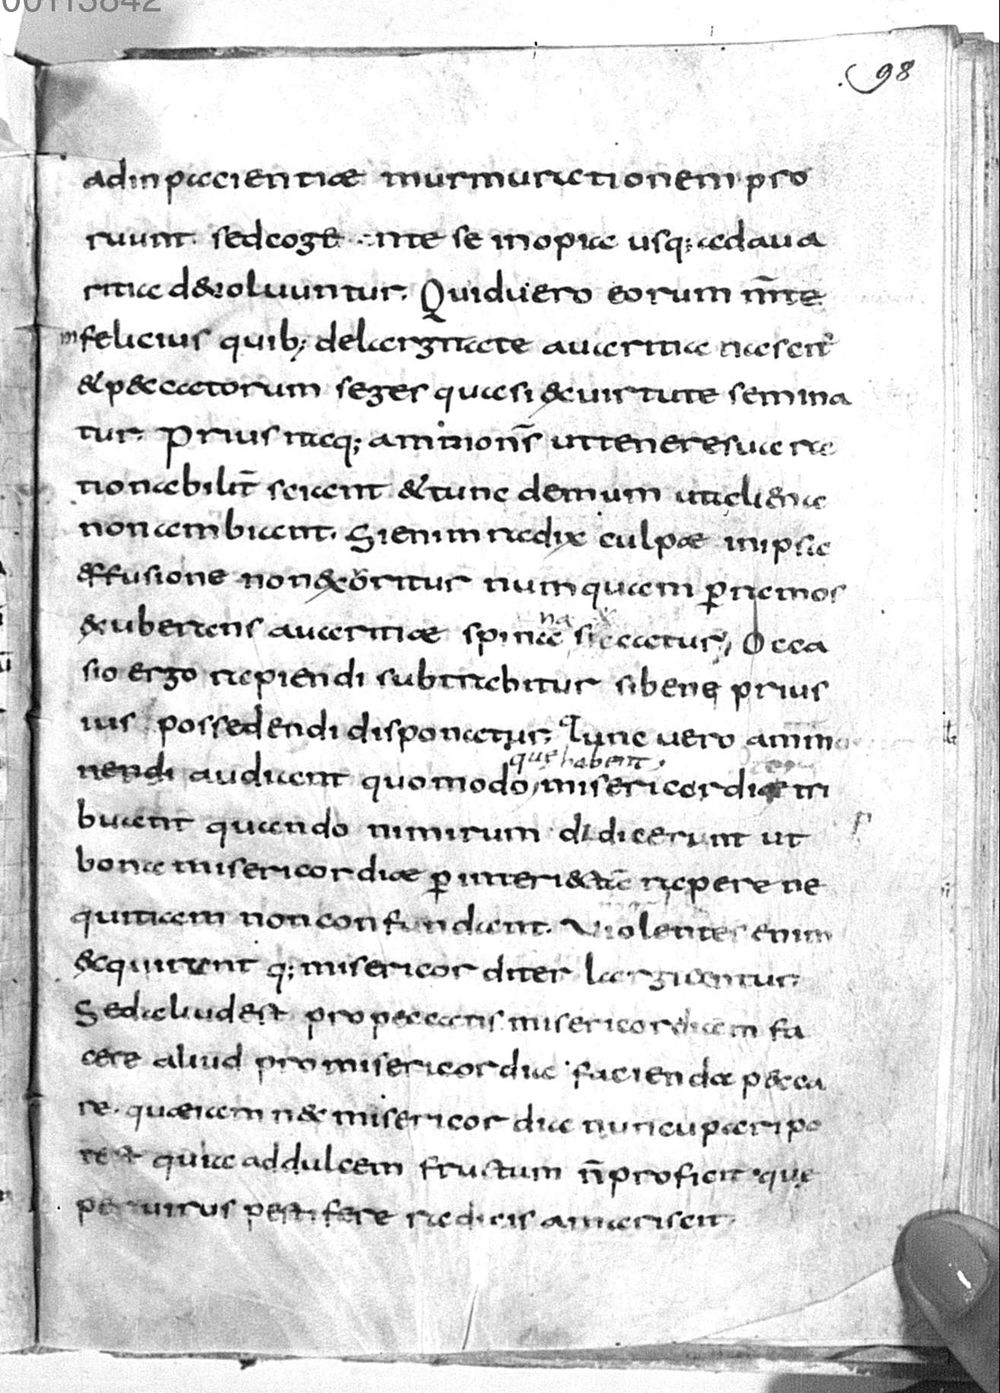 00113842
98
adinpacientiæ murmurationem pro
ruunt. sed cog&̄ nte se inopia usq; adaua
ritia d&̄uoluuntur. Quid uero eorum m̄te
infelicius quib; delargitate auaritia nascit̄
& p&ccatorum seges quasi & uirtute semina
tur. Prius itaq; ammonēs ut tenere sua ra
tionabilit̄ sciant & tunc demum ut aliena
non ambiant. Si enim radix culpæ inipsa
effusione non &̄oritur numquam p̄ ramos
&uberans auaritiæ spina siccatur, Occa
sio ergo rapiendi subtrahitur si bene prius
ius possedendi disponatur; Tunc uero ammo
nendi audiant quomodo que habent, misericordiæ tri
buant quando nimirum didicerunt ut
bona misericordiæ p̄ interi&ctā rapere ne
quitiam non confundant. Violenter enim
&cquirunt q; misericorditer largiuntur.
Sed aliud est pro peccatis misericordiam fa
cere aliud pro misericordia facienda p&cca
re. quæ iam n&c misericordia nuncupari po
test quia ad dulcem fructum n̄ proficit que
per uirus pestifere radicis amarescit.